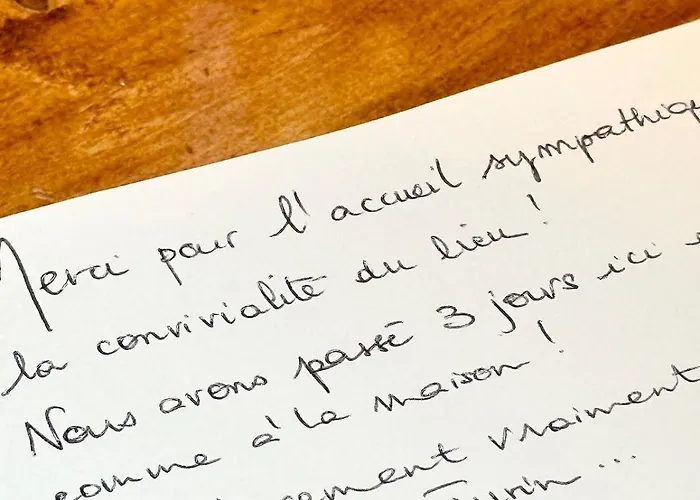 Merci pour l'accueil sympathiq
la convivialité du lieu !
Nous avons passé 3 jours ici
comme à la maison !
vraiment
...